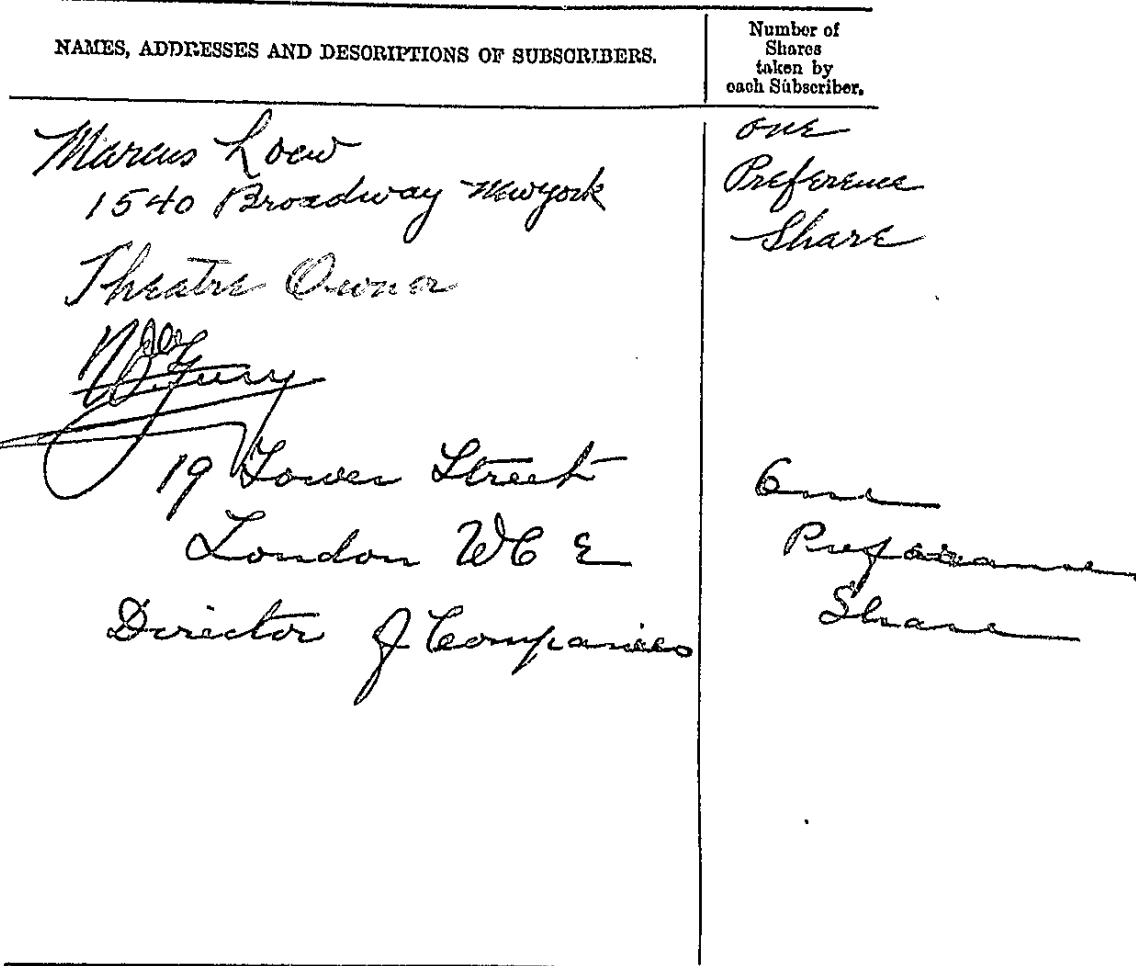 NAMES, ADDRESSES AND DESCRIPTIONS OF SUBSCRIBERS.
Number of
Shares
taken by
each Subscriber.
Marcus Loew
1540 Broadway Newyork
Theatre Owner
one
Preference
Share
Fury
19 Tower Street
London WC
Director of Companies
One
Preference
Share